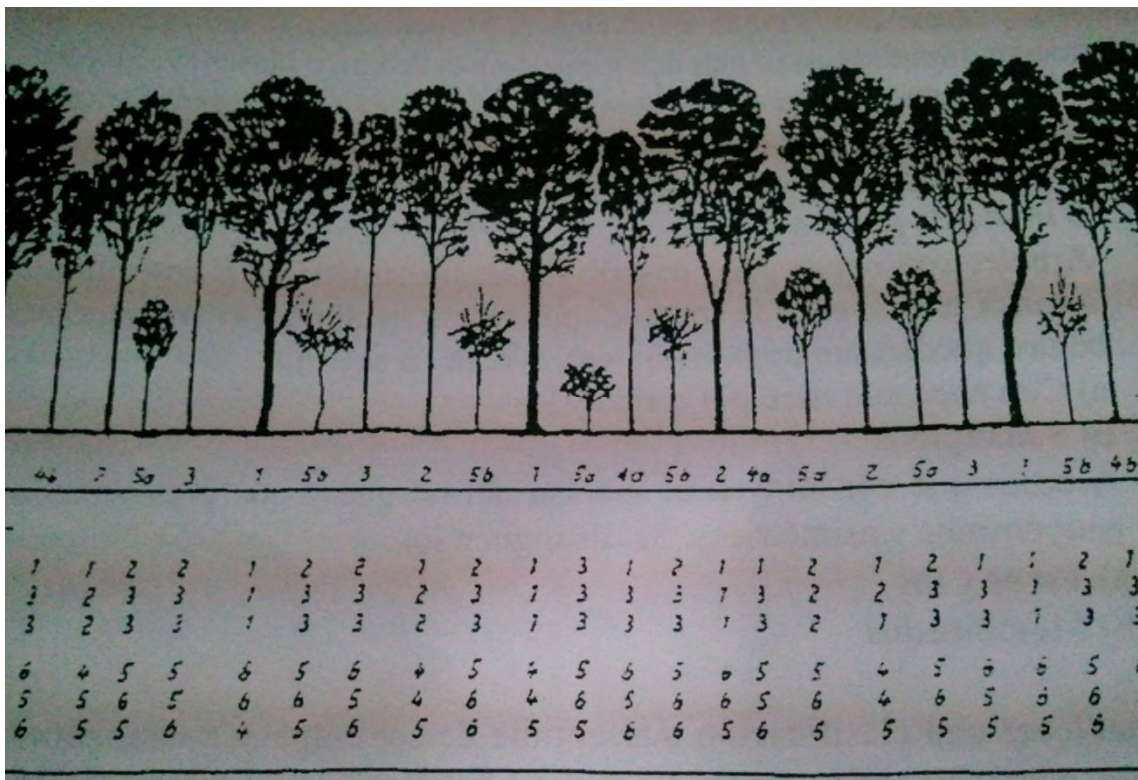 5a 3 1 5b 3 2 5b 1 5a 4a 5b 2 4a 5a 2 5a 3 1 5b 4b
1 1 2 2 1 2 2 1 2 1 3 1 2 1 1 2 1 2 1 1 2 1
3 2 3 3 1 3 3 2 3 1 3 3 3 1 3 2 2 3 3 1 3 3
3 2 3 3 1 3 3 2 3 1 3 3 3 1 3 2 1 3 3 1 3 3
6 4 5 5 6 5 6 4 5 4 5 6 5 6 5 5 4 5 6 6 5
5 5 6 5 6 6 5 4 6 4 6 5 6 6 5 6 4 6 5 6 6
6 5 5 6 4 5 6 5 6 5 5 6 6 5 5 6 5 5 5 5 6